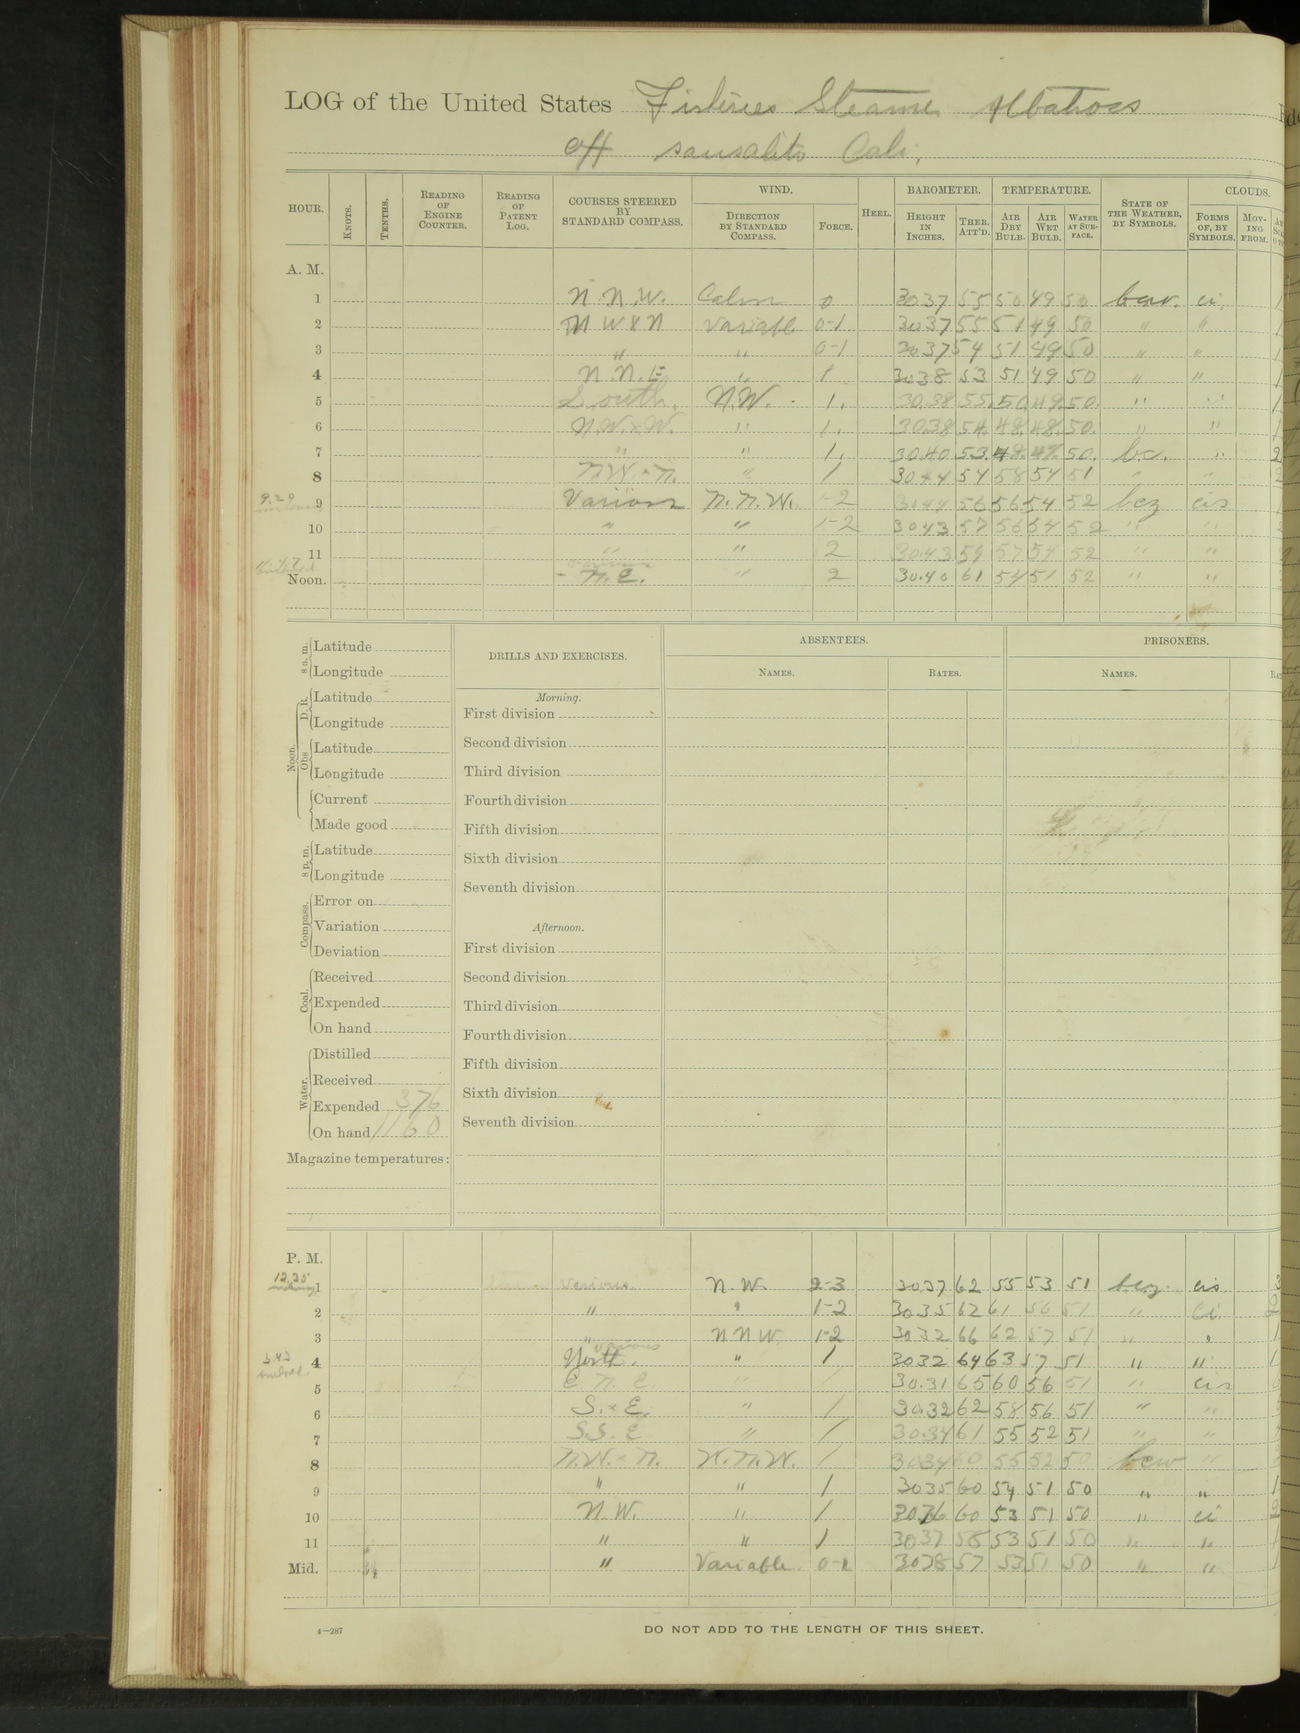 LOG of the United States Fisheries Steamer Albatross
off Sausalito Cali.
HOUR. KNOTS. TENTHS. READING OF ENGINE COUNTER. READING OF PATENT LOG. COURSES STEERED BY STANDARD COMPASS. WIND. DIRECTION BY STANDARD COMPASS. FORCE. HEEL. BAROMETER. HEIGHT IN INCHES. THER. ATT'D. TEMPERATURE. AIR DRY BULB. AIR WET BULB. WATER AT SURFACE. STATE OF THE WEATHER, BY SYMBOLS. CLOUDS. FORMS OF, BY SYMBOLS. MOVING FROM.
A. M.
1 N.N.W. Calm 0 30.37 55 50 49 50 bcw. ci. 1
2 N W X N Variable 0-1 30.37 55 51 49 50 " " 1
3 " " 0-1 30.37 54 51 49 50 " " 1
4 N.N.E. " 1 30.38 53 51 49 50 " " 1
5 South. N.W. 1. 30.38 55. 50. 49. 50. " " 1
6 N.W.xW. " 1. 30.38 54. 48. 48. 50. " " 1
7 " " 1. 30.40 53. 48. 47. 50. bc. " 2
8 N.W.xN. " 1 30.44 54 58 54 51 " " 2
9.29
9 Various N.N.W. 1-2 30.44 56 56 54 52 bcz cis
10 " " 1-2 30.43 57 56 54 52 " "
11 " " 2 30.43 59 57 54 52 " "
11.47
Noon. Various N.E. " 2 30.40 61 54 51 52 " "
8 a. m. Latitude
Longitude
Noon. D. R. Latitude
Longitude
Obs Latitude
Longitude
Current
Made good
8 p. m. Latitude
Longitude
Compass. Error on
Variation
Deviation
Coal. Received
Expended
On hand
Water. Distilled
Received
Expended 376
On hand 1160
Magazine temperatures:
DRILLS AND EXERCISES.
Morning.
First division
Second division
Third division
Fourth division
Fifth division
Sixth division
Seventh division
Afternoon.
First division
Second division
Third division
Fourth division
Fifth division
Sixth division
Seventh division
ABSENTEES.
NAMES. RATES.
PRISONERS.
NAMES.
P. M.
12.35
1 Various N.W. 2-3 30.37 62 55 53 51 bcz cis 3
2 " " 1-2 30.35 62 61 56 51 " ci. 2
3 " N N W 1-2 30.32 66 62 57 51 " " 1
3.43
4 Various North. " 1 30.32 64 63 57 51 " " 1
5 E.N.E. " 30.31 65 60 56 51 " cis
6 S.xE. " 1 30.32 62 58 56 51 " "
7 S.S.E " 1 30.34 61 55 52 51 " "
8 N.W.xN. W.N.W. 1 30.34 60 55 52 50 bcw "
9 " " 1 30.35 60 54 51 50 " " 1
10 N.W. " 1 30.36 60 53 51 50 " ci 2
11 " " 1 30.37 58 53 51 50 " " 1
Mid. " Variable 0-1 30.38 57 53 51 50 " " 1
4—287
DO NOT ADD TO THE LENGTH OF THIS SHEET.